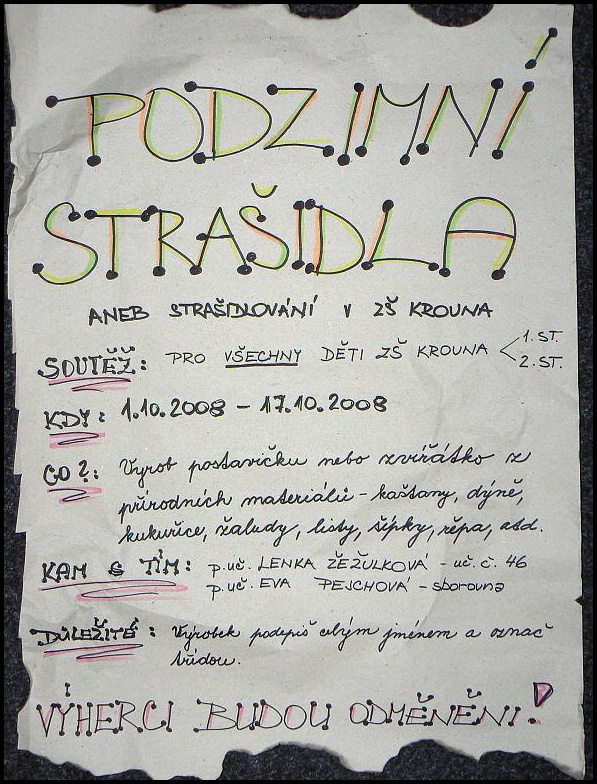 PODZIMNÍ
STRAŠIDLA
ANEB STRAŠIDLOVÁNÍ V ZŠ KROUNA
SOUTĚŽ: PRO VŠECHNY DĚTI ZŠ KROUNA < 1. ST.
2. ST.
KDY: 1.10.2008 – 17.10.2008
CO?: Vyrob postavičku nebo zvířátko z
přírodních materiálů - kaštany, dýně,
kukuřice, žaludy, listy, šípky, řepa, atd.
KAM S TÍM: p.uč. LENKA ŽEŽULKOVÁ - uč. č. 46
p.uč. EVA PEJCHOVÁ - sborovna
DŮLEŽITÉ: Výrobek podepiš celým jménem a označ
třídou.
VÝHERCI BUDOU ODMĚNĚNI!